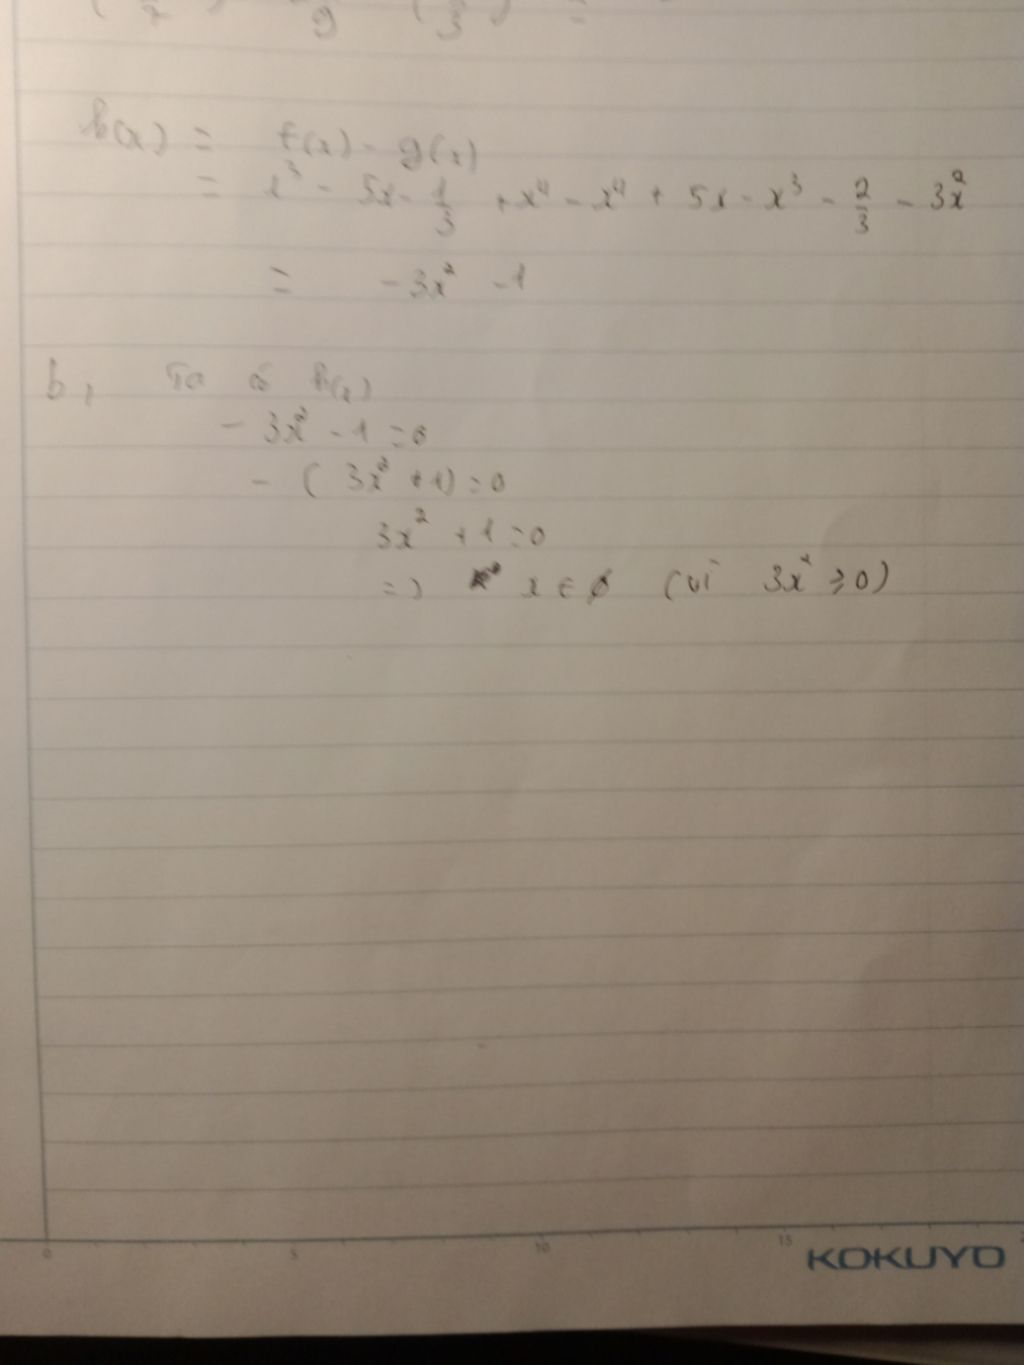 9 3 =
h(x) = f(x) - g(x)
= x³ - 5x - 1/3 + x⁴ - x⁴ + 5x - x³ - 2/3 - 3x²
= -3x² - 1
b, Ta có h(x)
- 3x² - 1 = 0
- ( 3x² + 1) = 0
3x² + 1 = 0
=> x ∈ ϕ (vì 3x² ≥ 0)
0 5 10 15
KOKUYO